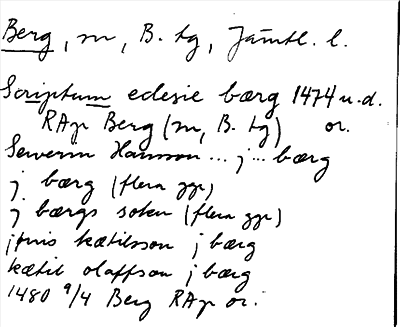 Berg, m, B. tg, Jämtl. l.
Scriptum eclesie bærg 1474 u.d.
RAp Berg (m, B. tg) or.
Sewerin Hanson... j... bærg
j bærg (flera ggr)
j bærgs soken (flera ggr)
jønis kætilsson j bærg
kætil olaffson j bærg
1480 9/4 Berg RAp or.